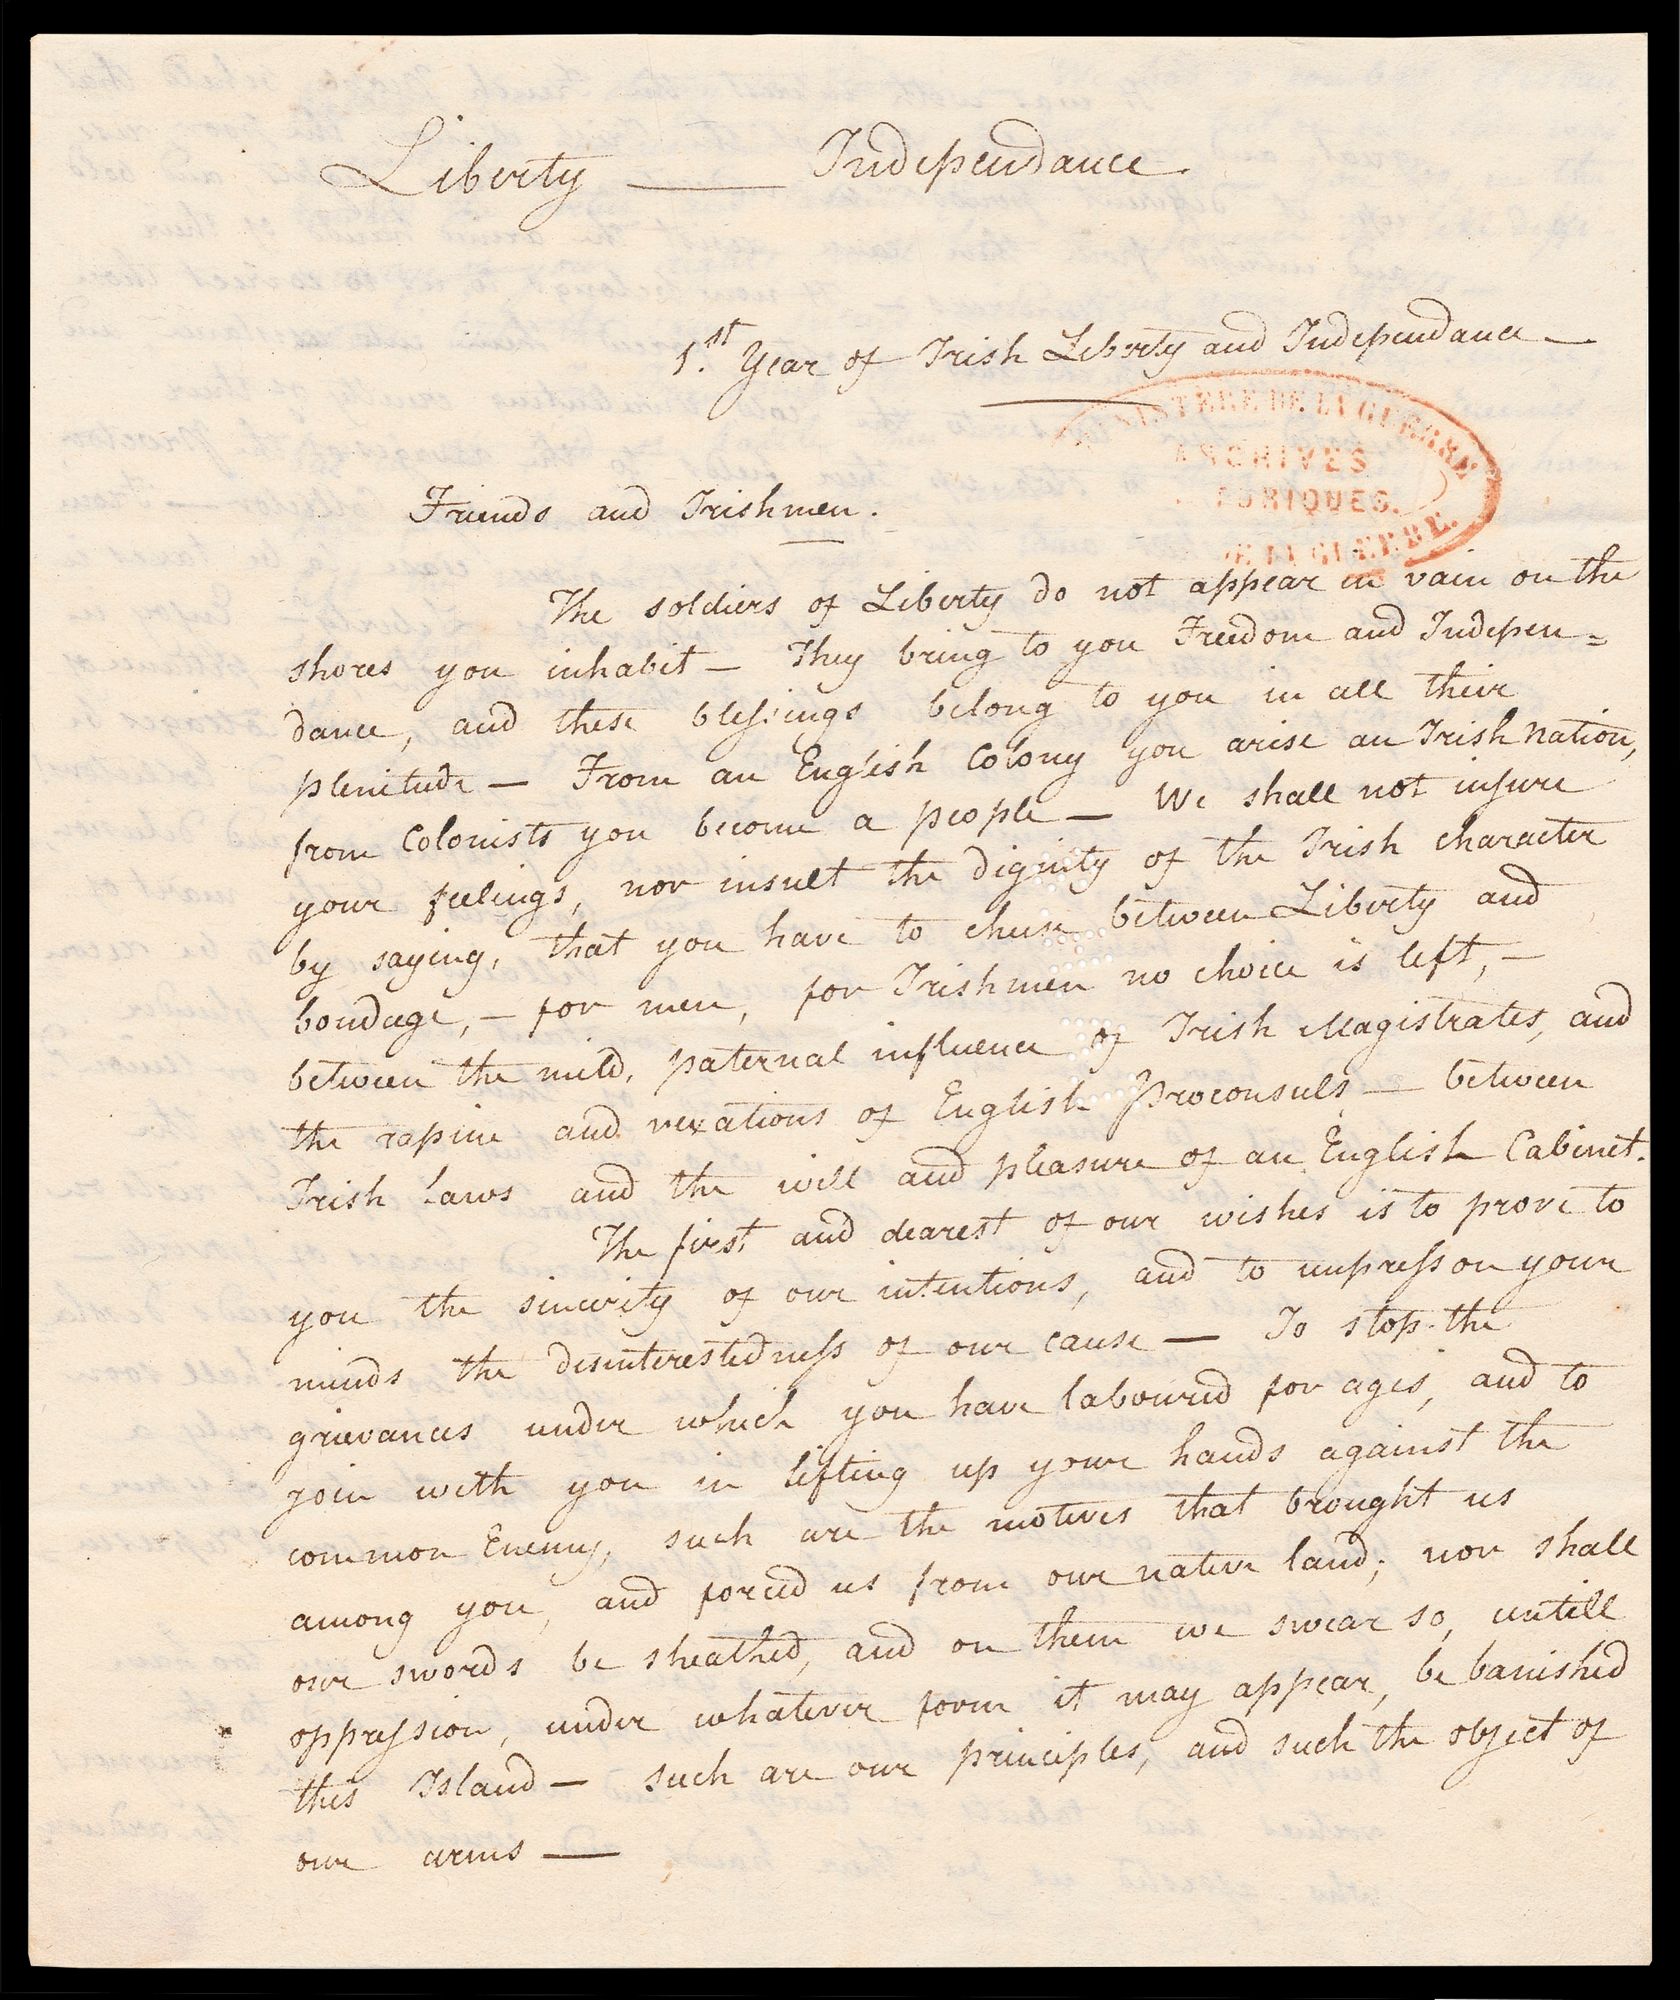 Liberty — Independance.
1.st Year of Irish Liberty and Independance —
MINISTERE DE LA GUERRE
ARCHIVES
TORIQUES.
DE LA GUERRE.
Friends and Irishmen.
The soldiers of Liberty do not appear in vain on the
shores you inhabit — They bring to you Freedom and Indepen=
dance, and these blessings belong to you in all their
plenitude — From an English Colony you arise an Irish Nation,
from Colonists you become a people — We shall not injure
your feelings, nor insult the dignity of the Irish character
by saying, that you have to chuse between Liberty and
bondage, — for men, for Irishmen no choice is left, —
between the mild, paternal influence of Irish Magistrates, and
the rapine and vexations of English Proconsuls — between
Irish Laws and the will and pleasure of an English Cabinet.
The first and dearest of our wishes is to prove to
you the sincerity of our intentions, and to impress on your
minds the disinterestedness of our cause — To stop the
grievances under which you have laboured for ages, and to
join with you in lifting up your hands against the
common Enemy, such are the motives that brought us
among you, and forced us from our native land; nor shall
our swords be sheathed, and on them we swear so, untill
oppression, under whatever form it may appear, be banished
this Island — such are our principles, and such the object of
our arms —